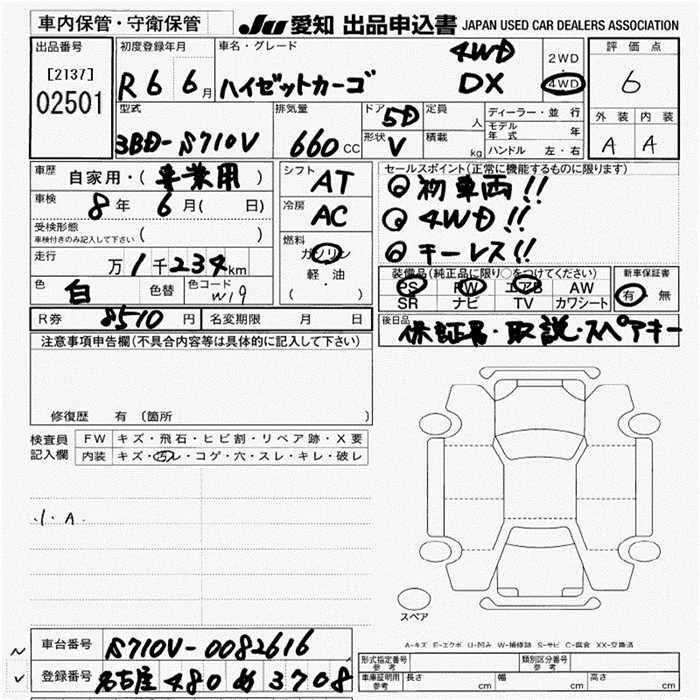 車内保管・守衛保管 JU 愛知 出品申込書 JAPAN USED CAR DEALERS ASSOCIATION
出品番号 [2137] 02501
初度登録年月 R6 6月
車名・グレード ハイゼットカーゴ 4WD DX
2WD・4WD
評価点 6
外装 内装
A A
型式 3BD-S710V
排気量 660 CC
ドア 5D
形状 V
定員 人
積載 kg
ディーラー・並行
モデル年式 年
ハンドル 左・右
車歴 自家用・(事業用)
車検 8年 6月( 日)
受検形態
車検付きのみ記入して下さい ( )
走行 万1千234km
色 白 色替 色コード W19
シフト AT
冷房 AC
燃料 ガソリン
軽・油
( )
セールスポイント(正常に機能するものに限ります)
◎初車両!!
◎4WD!!
◎キーレス!!
装備品(純正品に限り○をつけてください)
PS PW エアB AW
SR ナビ TV カワシート
新車保証書
有・無
R券 8510円 名変期限 月 日
後日品 保証書・取説・スペアキー
注意事項申告欄(不具合内容等は具体的に記入して下さい)
修復歴 有 (箇所
検査員記入欄
FW キズ・飛石・ヒビ割・リペア跡・X要
内装 キズ・汚レ・コゲ・穴・スレ・キレ・破レ
小A.
スペア
A-キズ E-エクボ U-凹み W-補修跡 S-サビ C-腐食 XX-交換済
車台番号 S710V-0082616
登録番号 名古屋 480 あ 3708
形式指定番号 参考 類別区分番号 参考
車庫証明用 参考 長さ cm 幅 cm 高さ cm